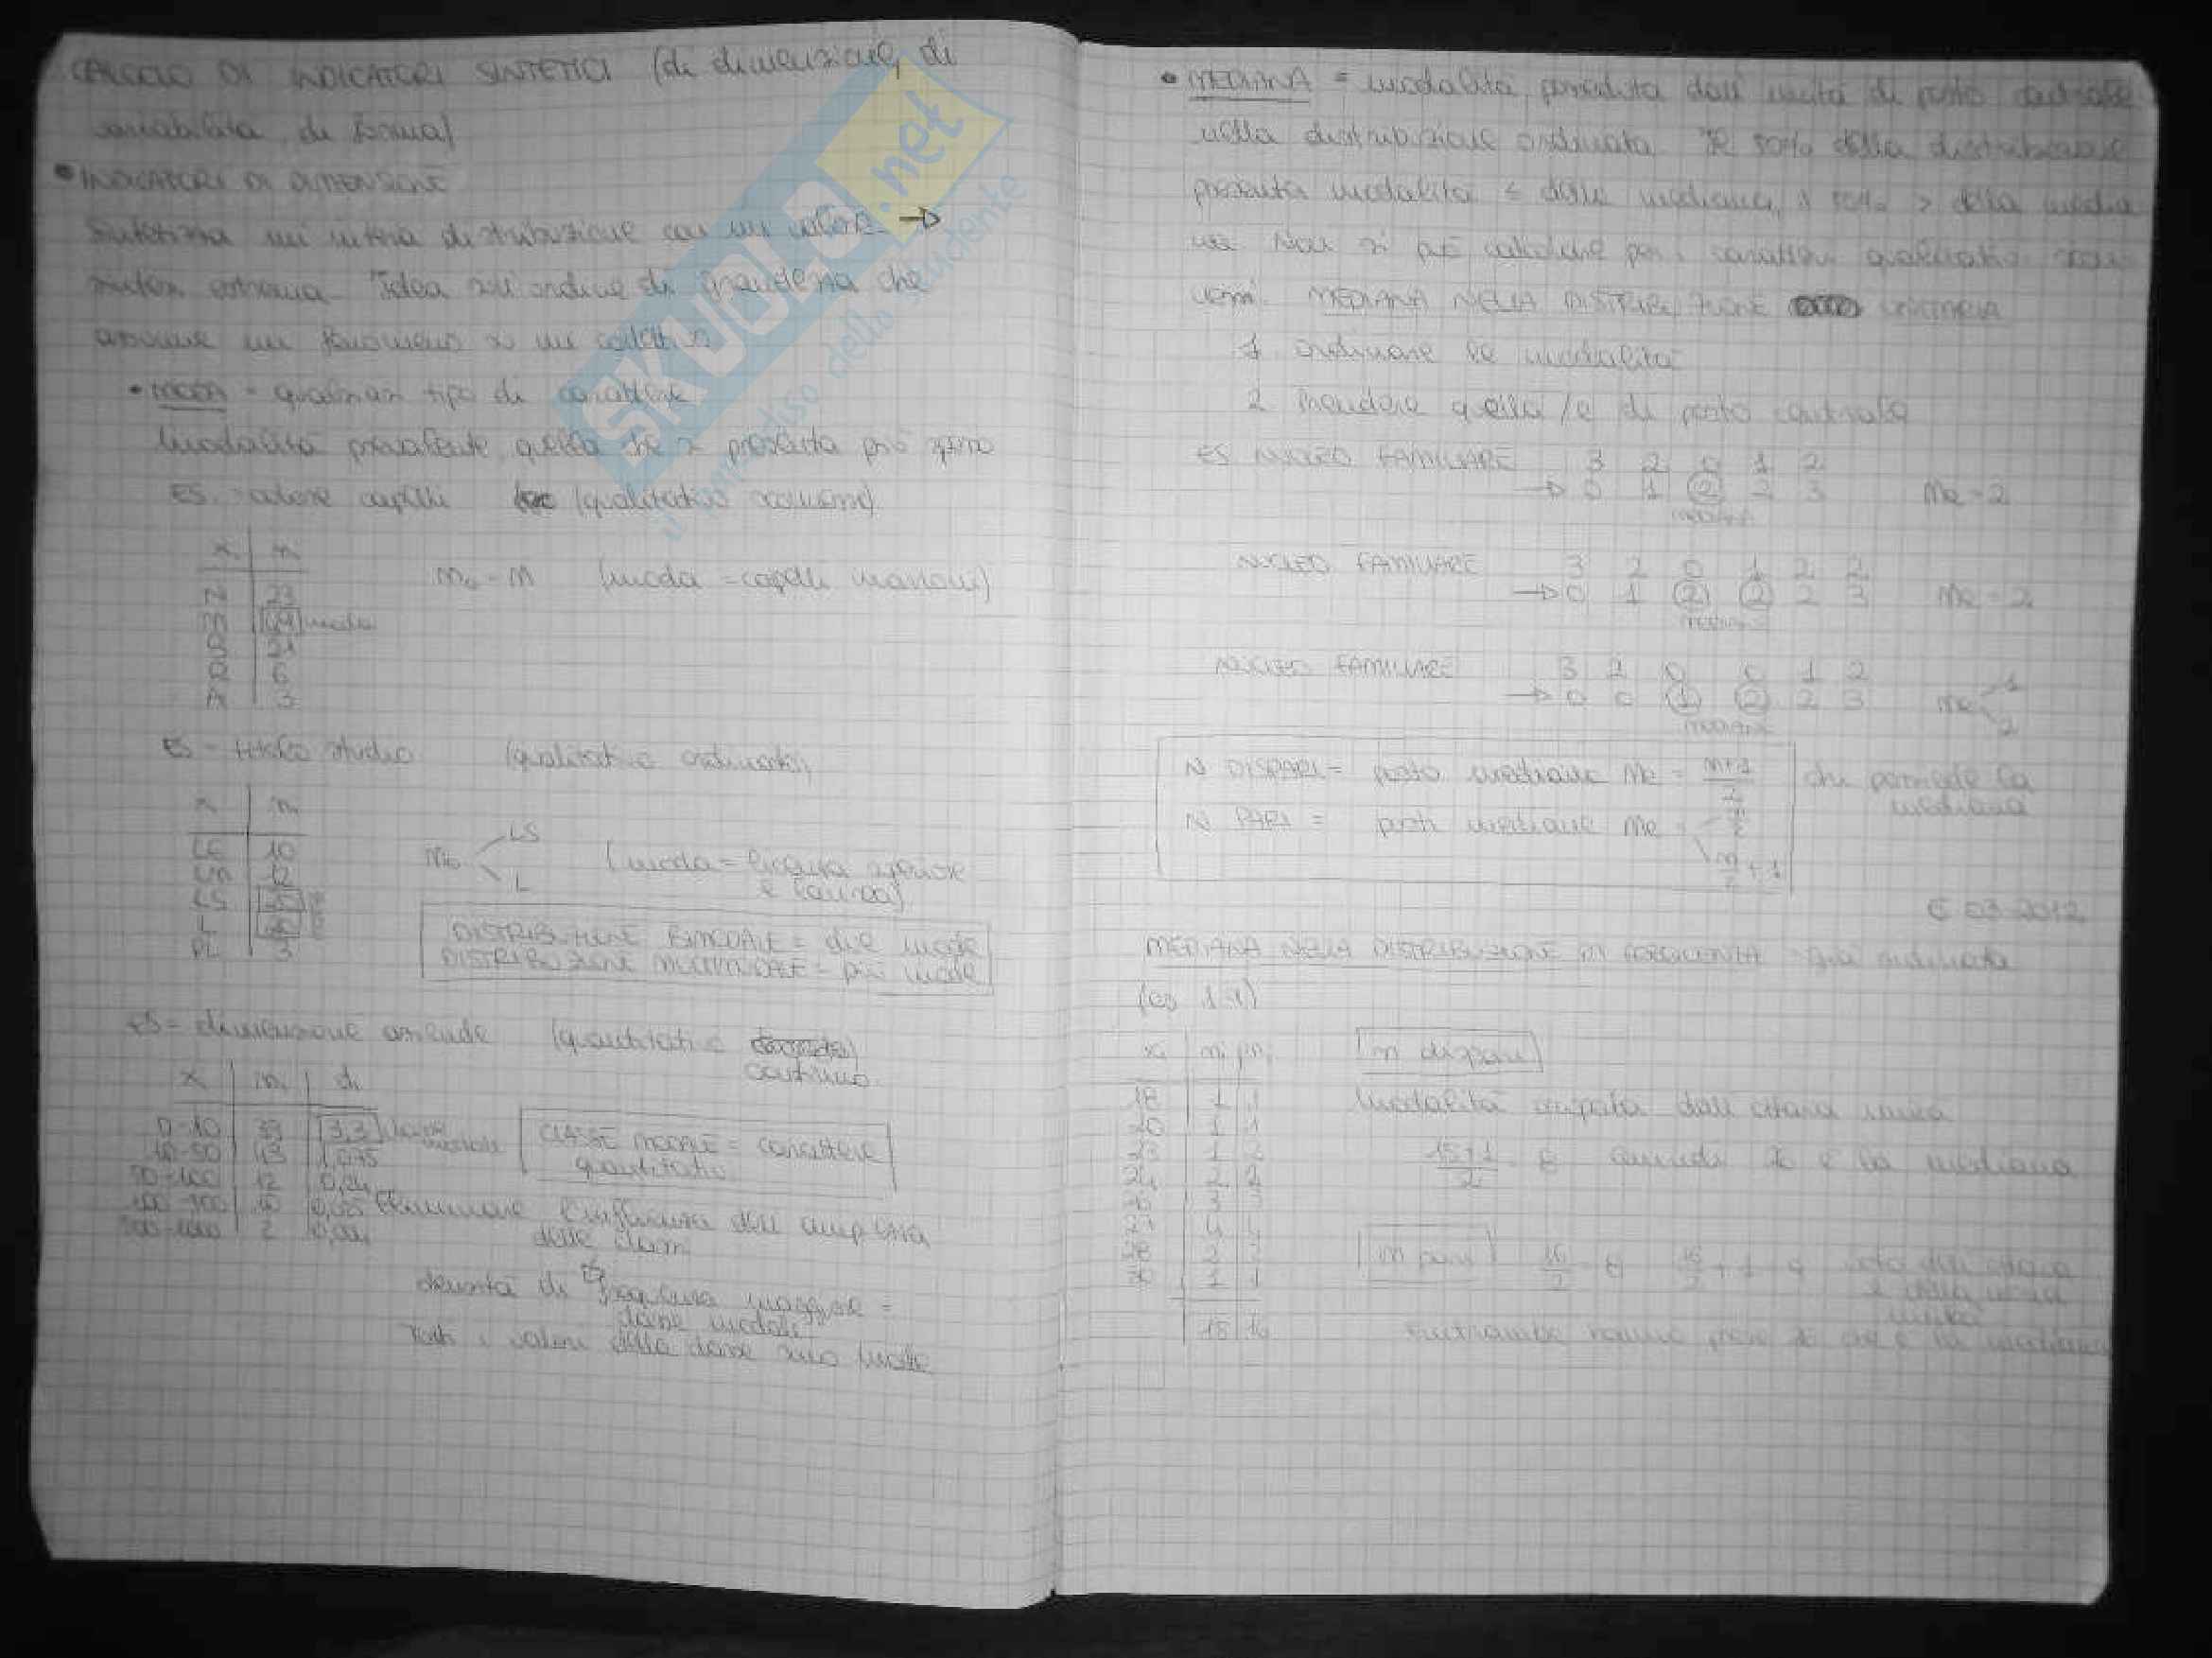 CALCOLO DI INDICATORI SINTETICI (di dimensione, di
variabilità, di forma)
• INDICATORI DI DIMENSIONE
Sintetizza un'intera distribuzione con un valore →
sintesi estrema. Idea sull'ordine di grandezza che
assume un fenomeno su un collettivo
• MODA = qualsiasi tipo di carattere
Modalità prevalente, quella che si presenta più
ES. colore capelli (qualitativo sconnesso)
x n
N 23
M moda
S 21
R 6
A 3
Mo = M (moda = capelli marroni)
ES = titolo studio (qualitativo ordinato)
x ni
LE 10
LM 12
LS
L
PL 3
Mo LS
L
(moda = licenza superiore
e laurea)
DISTRIBUZIONE BIMODALE = due mode
DISTRIBUZIONE MULTIMODALE = più mode
ES = dimensione aziende (quantitativo
continuo
x ni di
0-10 33 3,3 classe modale
10-50 43 1,075
50-100 12 0,24
100-500 10 0,025
500-1000 2 0,004
CLASSE MODALE = carattere
quantitativo
Eliminare l'influenza dell'ampiezza
delle classi
densità di frequenza maggiore =
classe modale
Tutti i valori della classe sono mode
• MEDIANA = modalità posseduta dall'unità di posto centrale
nella distribuzione ordinata. Il 50% della distribuzione
presenta modalità ≤ della mediana, il 50% > della media
na. Non si può calcolare per i caratteri qualitativi scon
nessi. MEDIANA NELLA DISTRIBUZIONE UNITARIA
1 ordinare le modalità
2 Prendere quella/e di posto centrale
ES NUCLEO FAMILIARE 3 2 0 1 2
→ 0 1 2 2 3 Me = 2
MEDIANA
NUCLEO FAMILIARE 3 2 0 1 2 2
→ 0 1 2 2 2 3 Me = 2
NUCLEO FAMILIARE 3 2 0 0 1 2
→ 0 0 1 2 2 3 Me 1
2
MEDIANA
N DISPARI = posto mediano Me = n+1/2
N PARI = posti mediane Me = n/2
n/2 + 1
che possiede la
mediana
6 03 2012
MEDIANA NELLA DISTRIBUZIONE DI FREQUENZA = già ordinata
(es 1.1)
xi ni ni
18 1 1
20 1 1
23 1 2
24 2 2
3 3
27 4 4
28 2 2
30 1 1
15 16
n dispari
Modalità occupata dall'ottava unità
15+1/2 = 8 quindi 26 è la mediana
n pari 16/2 = 8 16/2 + 1 = 9
unità
Entrambe hanno 26 che è la mediana
SKUOLA.net
il paradiso dello studente